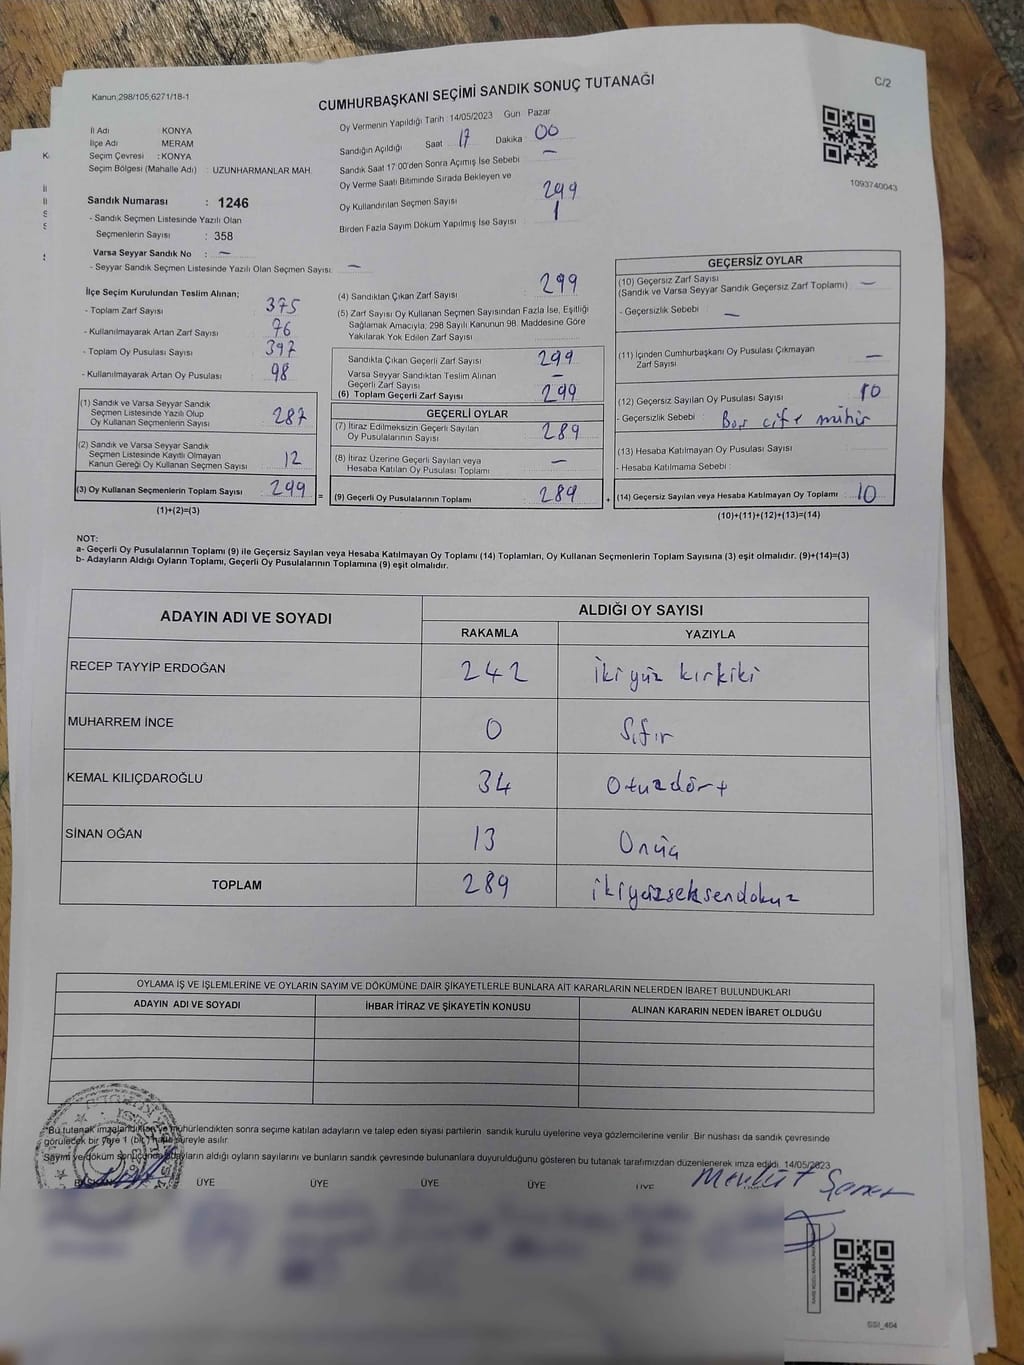 Kanun;298/105;6271/18-1
CUMHURBAŞKANI SEÇİMİ SANDIK SONUÇ TUTANAĞI
C/2
İl Adı KONYA
İlçe Adı MERAM
Seçim Çevresi : KONYA
Seçim Bölgesi (Mahalle Adı) : UZUNHARMANLAR MAH.
Oy Vermenin Yapıldığı Tarih 14/05/2023 Gün Pazar
Sandığın Açıldığı Saat 17 Dakika 00
Sandık Saat 17:00'den Sonra Açımış İse Sebebi —
Oy Verme Saati Bitiminde Sırada Bekleyen ve
Oy Kullandırılan Seçmen Sayısı 299
Birden Fazla Sayım Döküm Yapılmış İse Sayısı 1
1093740043
Sandık Numarası : 1246
- Sandık Seçmen Listesinde Yazılı Olan
Seçmenlerin Sayısı : 358
Varsa Seyyar Sandık No : —
- Seyyar Sandık Seçmen Listesinde Yazılı Olan Seçmen Sayısı: —
İlçe Seçim Kurulundan Teslim Alınan;
- Toplam Zarf Sayısı 375
- Kullanılmayarak Artan Zarf Sayısı 76
- Toplam Oy Pusulası Sayısı 397
- Kullanılmayarak Artan Oy Pusulası 98
(1) Sandık ve Varsa Seyyar Sandık
Seçmen Listesinde Yazılı Olup
Oy Kullanan Seçmenlerin Sayısı 287
(2) Sandık ve Varsa Seyyar Sandık
Seçmen Listesinde Kayıtlı Olmayan
Kanun Gereği Oy Kullanan Seçmen Sayısı 12
(3) Oy Kullanan Seçmenlerin Toplam Sayısı 299
(1)+(2)=(3)
(4) Sandıktan Çıkan Zarf Sayısı 299
(5) Zarf Sayısı Oy Kullanan Seçmen Sayısından Fazla İse, Eşitliği
Sağlamak Amacıyla; 298 Sayılı Kanunun 98. Maddesine Göre
Yakılarak Yok Edilen Zarf Sayısı
Sandıkta Çıkan Geçerli Zarf Sayısı 299
Varsa Seyyar Sandıktan Teslim Alınan
Geçerli Zarf Sayısı —
(6) Toplam Geçerli Zarf Sayısı 299
GEÇERLİ OYLAR
(7) İtiraz Edilmeksizin Geçerli Sayılan
Oy Pusulalarının Sayısı 289
(8) İtiraz Üzerine Geçerli Sayılan veya
Hesaba Katılan Oy Pusulası Toplamı —
(9) Geçerli Oy Pusulalarının Toplamı 289
GEÇERSİZ OYLAR
(10) Geçersiz Zarf Sayısı
(Sandık ve Varsa Seyyar Sandık Geçersiz Zarf Toplamı) —
- Geçersizlik Sebebi : —
(11) İçinden Cumhurbaşkanı Oy Pusulası Çıkmayan
Zarf Sayısı —
(12) Geçersiz Sayılan Oy Pusulası Sayısı 10
- Geçersizlik Sebebi : Boş çift mühür
(13) Hesaba Katılmayan Oy Pusulası Sayısı
- Hesaba Katılmama Sebebi :
(14) Geçersiz Sayılan veya Hesaba Katılmayan Oy Toplamı : 10
(10)+(11)+(12)+(13)=(14)
NOT:
a- Geçerli Oy Pusulalarının Toplamı (9) ile Geçersiz Sayılan veya Hesaba Katılmayan Oy Toplamı (14) Toplamları, Oy Kullanan Seçmenlerin Toplam Sayısına (3) eşit olmalıdır. (9)+(14)=(3)
b- Adayların Aldığı Oyların Toplamı, Geçerli Oy Pusulalarının Toplamına (9) eşit olmalıdır.
ADAYIN ADI VE SOYADI ALDIĞI OY SAYISI
RAKAMLA YAZIYLA
RECEP TAYYİP ERDOĞAN 242 İkiyüz kırkiki
MUHARREM İNCE 0 Sıfır
KEMAL KILIÇDAROĞLU 34 Otuzdört
SİNAN OĞAN 13 Onüç
TOPLAM 289 ikiyüzseksendokuz
OYLAMA İŞ VE İŞLEMLERİNE VE OYLARIN SAYIM VE DÖKÜMÜNE DAİR ŞİKAYETLERLE BUNLARA AİT KARARLARIN NELERDEN İBARET BULUNDUKLARI
ADAYIN ADI VE SOYADI İHBAR İTİRAZ VE ŞİKAYETİN KONUSU ALINAN KARARIN NEDEN İBARET OLDUĞU
"Bu tutanak imzalandıktan ve mühürlendikten sonra seçime katılan adayların ve talep eden siyasi partilerin sandık kurulu üyelerine veya gözlemcilerine verilir. Bir nüshası da sandık çevresinde
görülecek bir yere 1 (bir) hafta süreyle asılır.
Sayım ve döküm sonucunda adayların aldığı oyların sayılarını ve bunların sandık çevresinde bulunanlara duyurulduğunu gösteren bu tutanak tarafımızdan düzenlenerek imza edildi. 14/05/2023
BAŞKAN ÜYE ÜYE ÜYE ÜYE ÜYE Mevlüt
SSİ_404